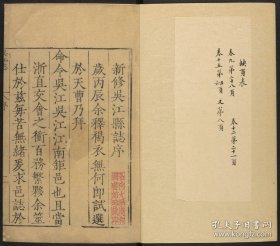 缺頁表
卷九第二十八頁
卷十二第二十一頁
卷十五第 頁 又第八頁
新修吳江縣誌序
歲丙辰余釋褐衣無何即試選
於天曹乃拜
命令吳江吳江江南鉅邑也且當
浙直交會之衝百務繁夥余筮
仕於茲每苦無緒爰求邑誌於
孔夫子旧书网